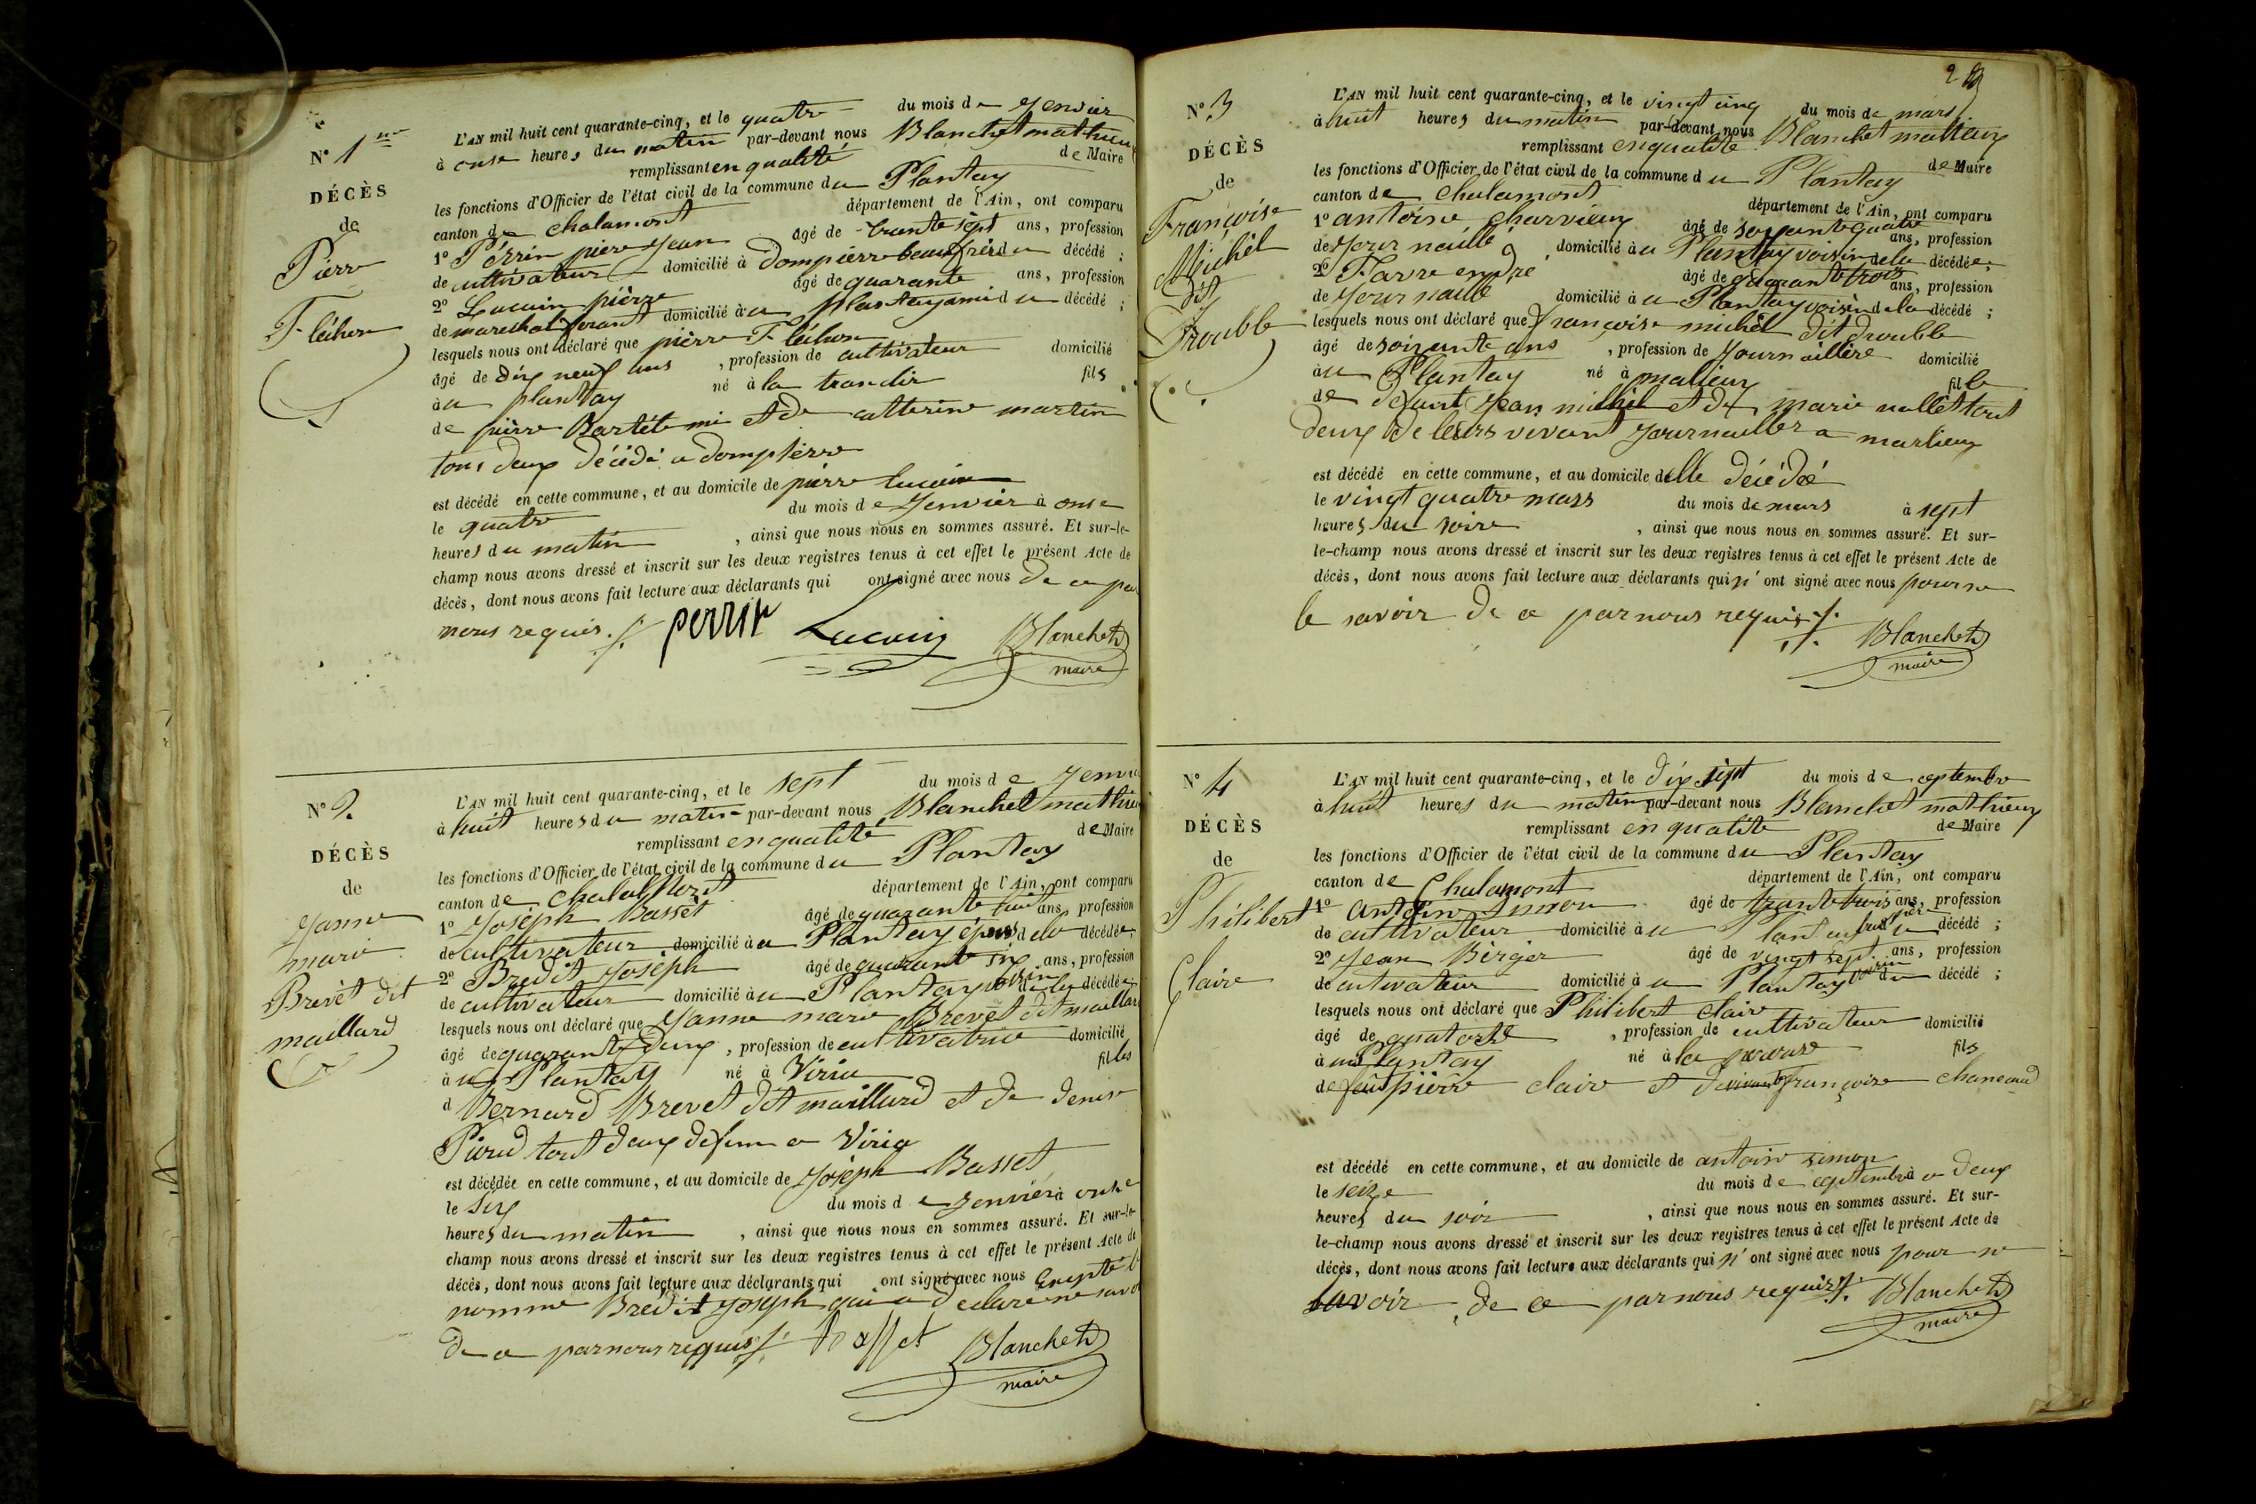 N° 1er
DÉCÈS
de
Pierre
Fléchon
L'AN mil huit cent quarante-cinq, et le quatre du mois de Jenvier
à onse heures du matin par-devant nous Blanchet mathieux
remplissant en qualité de Maire
les fonctions d'Officier de l'état civil de la commune du Plantay
canton de chalamont département de l'Ain, ont comparu
1° Perrin pierre Jean âgé de trante sept ans, profession
de cultivateur domicilié à dompierre beaufrère du décédé ;
2° Lucuin pièrre âgé de quarante ans, profession
de marechal ferant domicilié à au plantay ami du décédé ;
lesquels nous ont déclaré que pièrre Fléchon
âgé de dix neuf ans , profession de cultivateur domicilié
à au plantay né à la tranclir fils
de pièrre Bartélémi et de catterine martin
tous deux décédé a dompierre
est décédé en cette commune, et au domicile de pièrre lucuin
le quatre du mois de Jenvier à onse
heures du matin , ainsi que nous nous en sommes assuré. Et sur-le-
champ nous avons dressé et inscrit sur les deux registres tenus à cet effet le présent Acte de
décès, dont nous avons fait lecture aux déclarants qui ont signé avec nous de ce par
nous requis ./. perrin Lucuin Blanchet
maire
N° 2.
DÉCÈS
de
Janne
marie
Brevèt dit
maillard
L'AN mil huit cent quarante-cinq, et le sept du mois de Jenvi
à huit heures du matin par-devant nous Blanchet mathieu
remplissant en qualité de Maire
les fonctions d'Officier de l'état civil de la commune du Plantay
canton de chalamont département de l'Ain, ont comparu
1° Joséph Bassèt âgé de quarante huit ans, profession
de cultivateur domicilié à au Plantay épous de la décédée ;
2° Bredit Joséph âgé de quarante six ans, profession
de cultivateur domicilié à au Plantay voisin de la décédée
lesquels nous ont déclaré que Janne marie Brevet dit maillard
âgé de quarante deux , profession de cultivatrice domicilié
à au Plantay né à Viria filles
d Bernard Brevet dit maillard et de denise
Pivud tout deux défunt a Viria
est décédée en cette commune, et au domicile de Joséph Basset
le six du mois de Jenvier à onse
heures du matin , ainsi que nous nous en sommes assuré. Et sur-le-
champ nous avons dressé et inscrit sur les deux registres tenus à cet effet le présent Acte de
décès, dont nous avons fait lecture aux déclarants qui ont signé avec nous Exepté le
nommé Bredit Joseph qui a déclare ne savoi
de ce par nous requis ./. Basset Blanchet
maire
N° 3
DÉCÈS
de
Françoise
Michél
dit
Trouble
L'AN mil huit cent quarante-cinq, et le vingt cinq du mois de mars
à huit heures du matin par-devant nous Blanchet mattieux
remplissant en qualité de Maire
les fonctions d'Officier de l'état civil de la commune du Plantay
canton de chalamont département de l'Ain, ont comparu
1° antoine charvieux âgé de soixante quatre ans, profession
de Journaillé domicilié à au Plantay voisin de la décédée ;
2° Favre endré âgé de quarante trois ans, profession
de Journaille domicilié à au Plantay voisin de la décédé ;
lesquels nous ont déclaré que françoise michél dit drouble
âgé de soixante ans , profession de Journaillère domicilié
à au Plantay né à malieux fille
de défunt Jean michél et de marie nallèt tout
deux de leurs vivant Journallier a marlieux
est décédé en cette commune, et au domicile delle décédée
le vingt quatre mars du mois de mars à sept
heures du soire , ainsi que nous nous en sommes assuré. Et sur-
le-champ nous avons dressé et inscrit sur les deux registres tenus à cet effet le présent Acte de
décès, dont nous avons fait lecture aux déclarants qui n' ont signé avec nous pour ne
le savoir de ce par nous requis ./. Blanchet
maire
N° 4
DÉCÈS
de
Philibert
Claire
L'AN mil huit cent quarante-cinq, et le dix sept du mois de ceptembre
à huit heures du matin par-devant nous Blanchet mathieux
remplissant en qualité de Maire
les fonctions d'Officier de l'état civil de la commune du Plantay
canton de Chalamont département de l'Ain, ont comparu
1° antoine Simon âgé de trante trois ans, profession
de cultivateur domicilié à au Plantay du décédé ;
2° Jean Birger âgé de vingt sept ans, profession
de cutivateur domicilié à au Plantay voisin du décédé ;
lesquels nous ont déclaré que Philibert claire
âgé de quatorse , profession de cultivateur domicilié
à au Plantay né à la fils
de feut pièrre claire et de vivante françoise chanead
est décédé en cette commune, et au domicile de antoine simon
le seize du mois de ceptembre à a deux
heures du soir , ainsi que nous nous en sommes assuré. Et sur-
le-champ nous avons dressé et inscrit sur les deux registres tenus à cet effet le présent Acte de
décès, dont nous avons fait lecture aux déclarants qui n' ont signé avec nous pour ne
savoir de ce par nous requis ./. Blanchet
maire